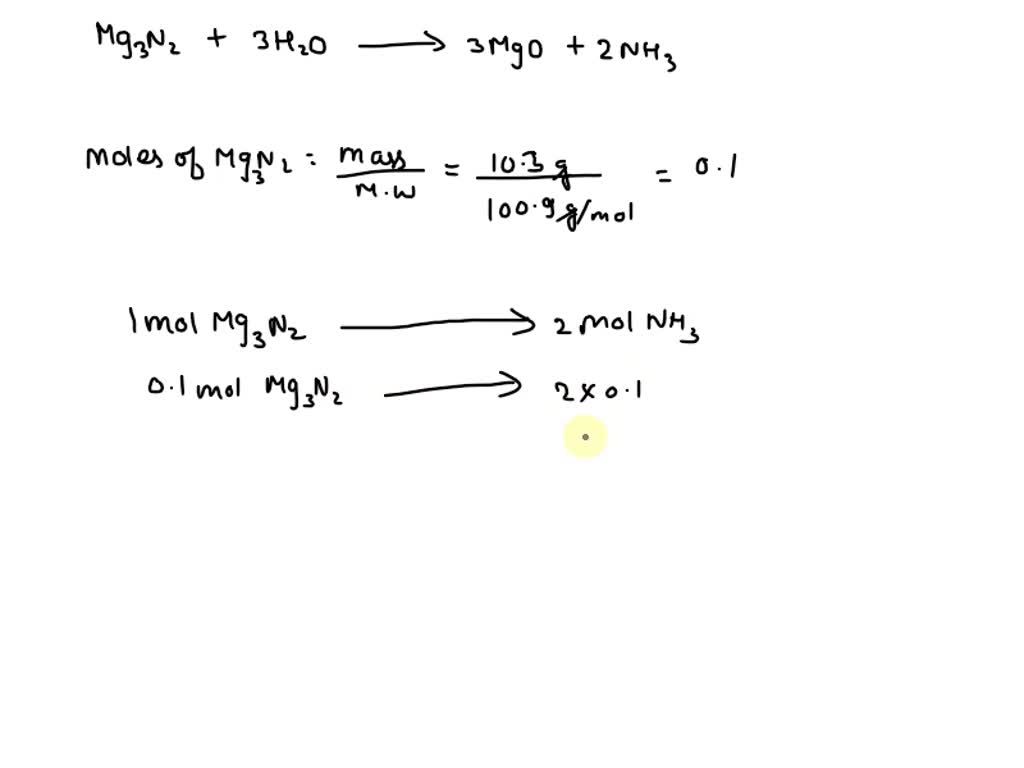 Mg₃N₂ + 3H₂O ⟶ 3MgO + 2NH₃
Moles of Mg₃N₂ : mass / M.W = 10.3 g / 100.9 g/mol = 0.1
1 mol Mg₃N₂ ⟶ 2 mol NH₃
0.1 mol Mg₃N₂ ⟶ 2 × 0.1